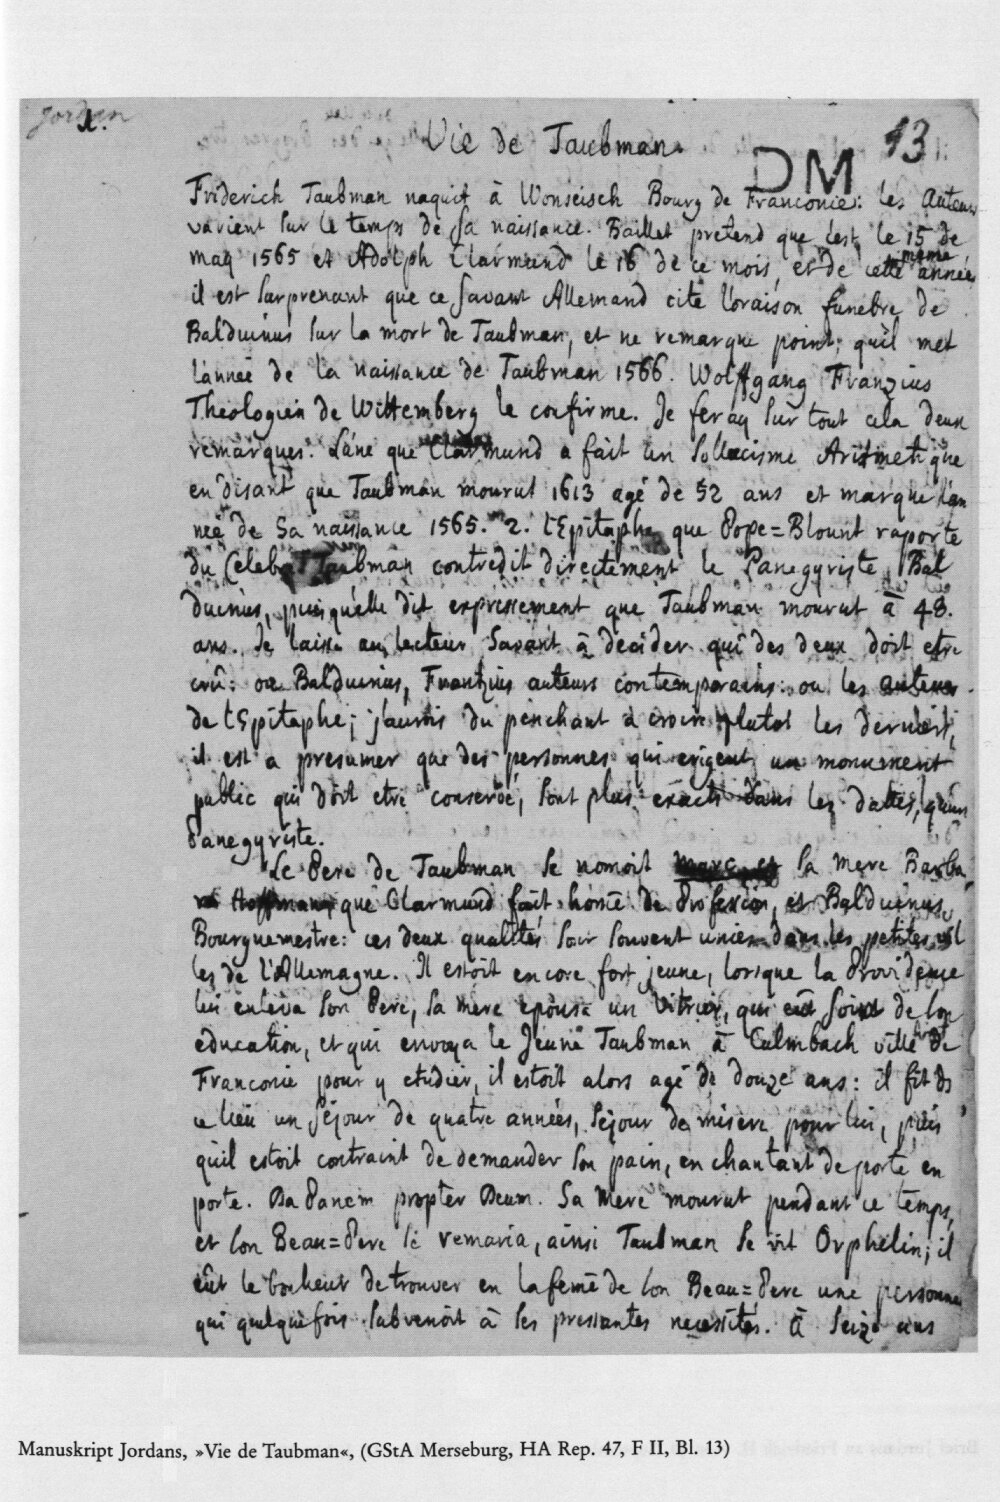 Jordan
1.
Vie de Taubman.
13
DM
Friderich Taubman naquit à Wonseisch Bourg de Franconie: les Auteurs
varient sur le temps de sa naissance. Baillet pretend que c'est le 15 de
may 1565 et Adolph Clarmund le 16 de ce mois, et de cette même année
il est surprenant que ce savant Allemand cite l'oraison funebre de
Balduinus sur la mort de Taubman, et ne remarque point, qu'il met
l'année de la naissance de Taubman 1566. Wolffgang Franzius
Theologien de Wittemberg le confirme. Je feray sur tout cela deux
remarques. L'une que Clarmund a fait un sollecisme Aritmetique
en disant que Taubman mourut 1613 agé de 52 ans et marque l'an
née de sa naissance 1565. 2. l'Epitaphe que Pope=Blount raporte
du Taubman contredit directement le Panegyriste Bal
duinus, puisqu'elle dit expressement que Taubman mourut à 48.
ans. Je laisse au lecteur savant à decider qui des deux doit etre
crû: ou Balduinus, Frantzius auteurs contemporains: ou les auteurs
de l'Epitaphe; j'aurois du penchant à croire plutot les derniers,
il est a presumer que des personnes qui erigent un monument
public qui doit etre conservé, sont plus exacts dans les dattes, qu'un
Panegyriste.
Le Pere de Taubman se nomoit Marc, et sa mere Barba
ra Hoffmann, que Clarmund fait de Profession, et Balduinus
Bourguemestre: ces deux qualités sont souvent unies dans les petites vil
les de l'Allemagne. Il estoit encore fort jeune, lorsque la Providence
lui enleva son Pere, sa mere epousa un qui eut soin de son
education, et qui envoya le Jeune Taubman à Culmbach ville de
Franconie pour y etudier, il estoit alors agé de douze ans: il fit ds
ce lieu un séjour de quatre années, séjour de misere pour lui, puis
qu'il estoit contraint de demander son pain, en chantant de porte en
porte. Da Panem propter Deum. Sa Mere mourut pendant ce temps,
et son Beau=Pere se remaria, ainsi Taubman se vit Orphelin; il
eût le bonheur de trouver en la feme de son Beau=Pere une personne
qui quelquefois subvenoit à ses pressantes necessités. à seize ans
Manuskript Jordans, »Vie de Taubman«, (GStA Merseburg, HA Rep. 47, F II, Bl. 13)